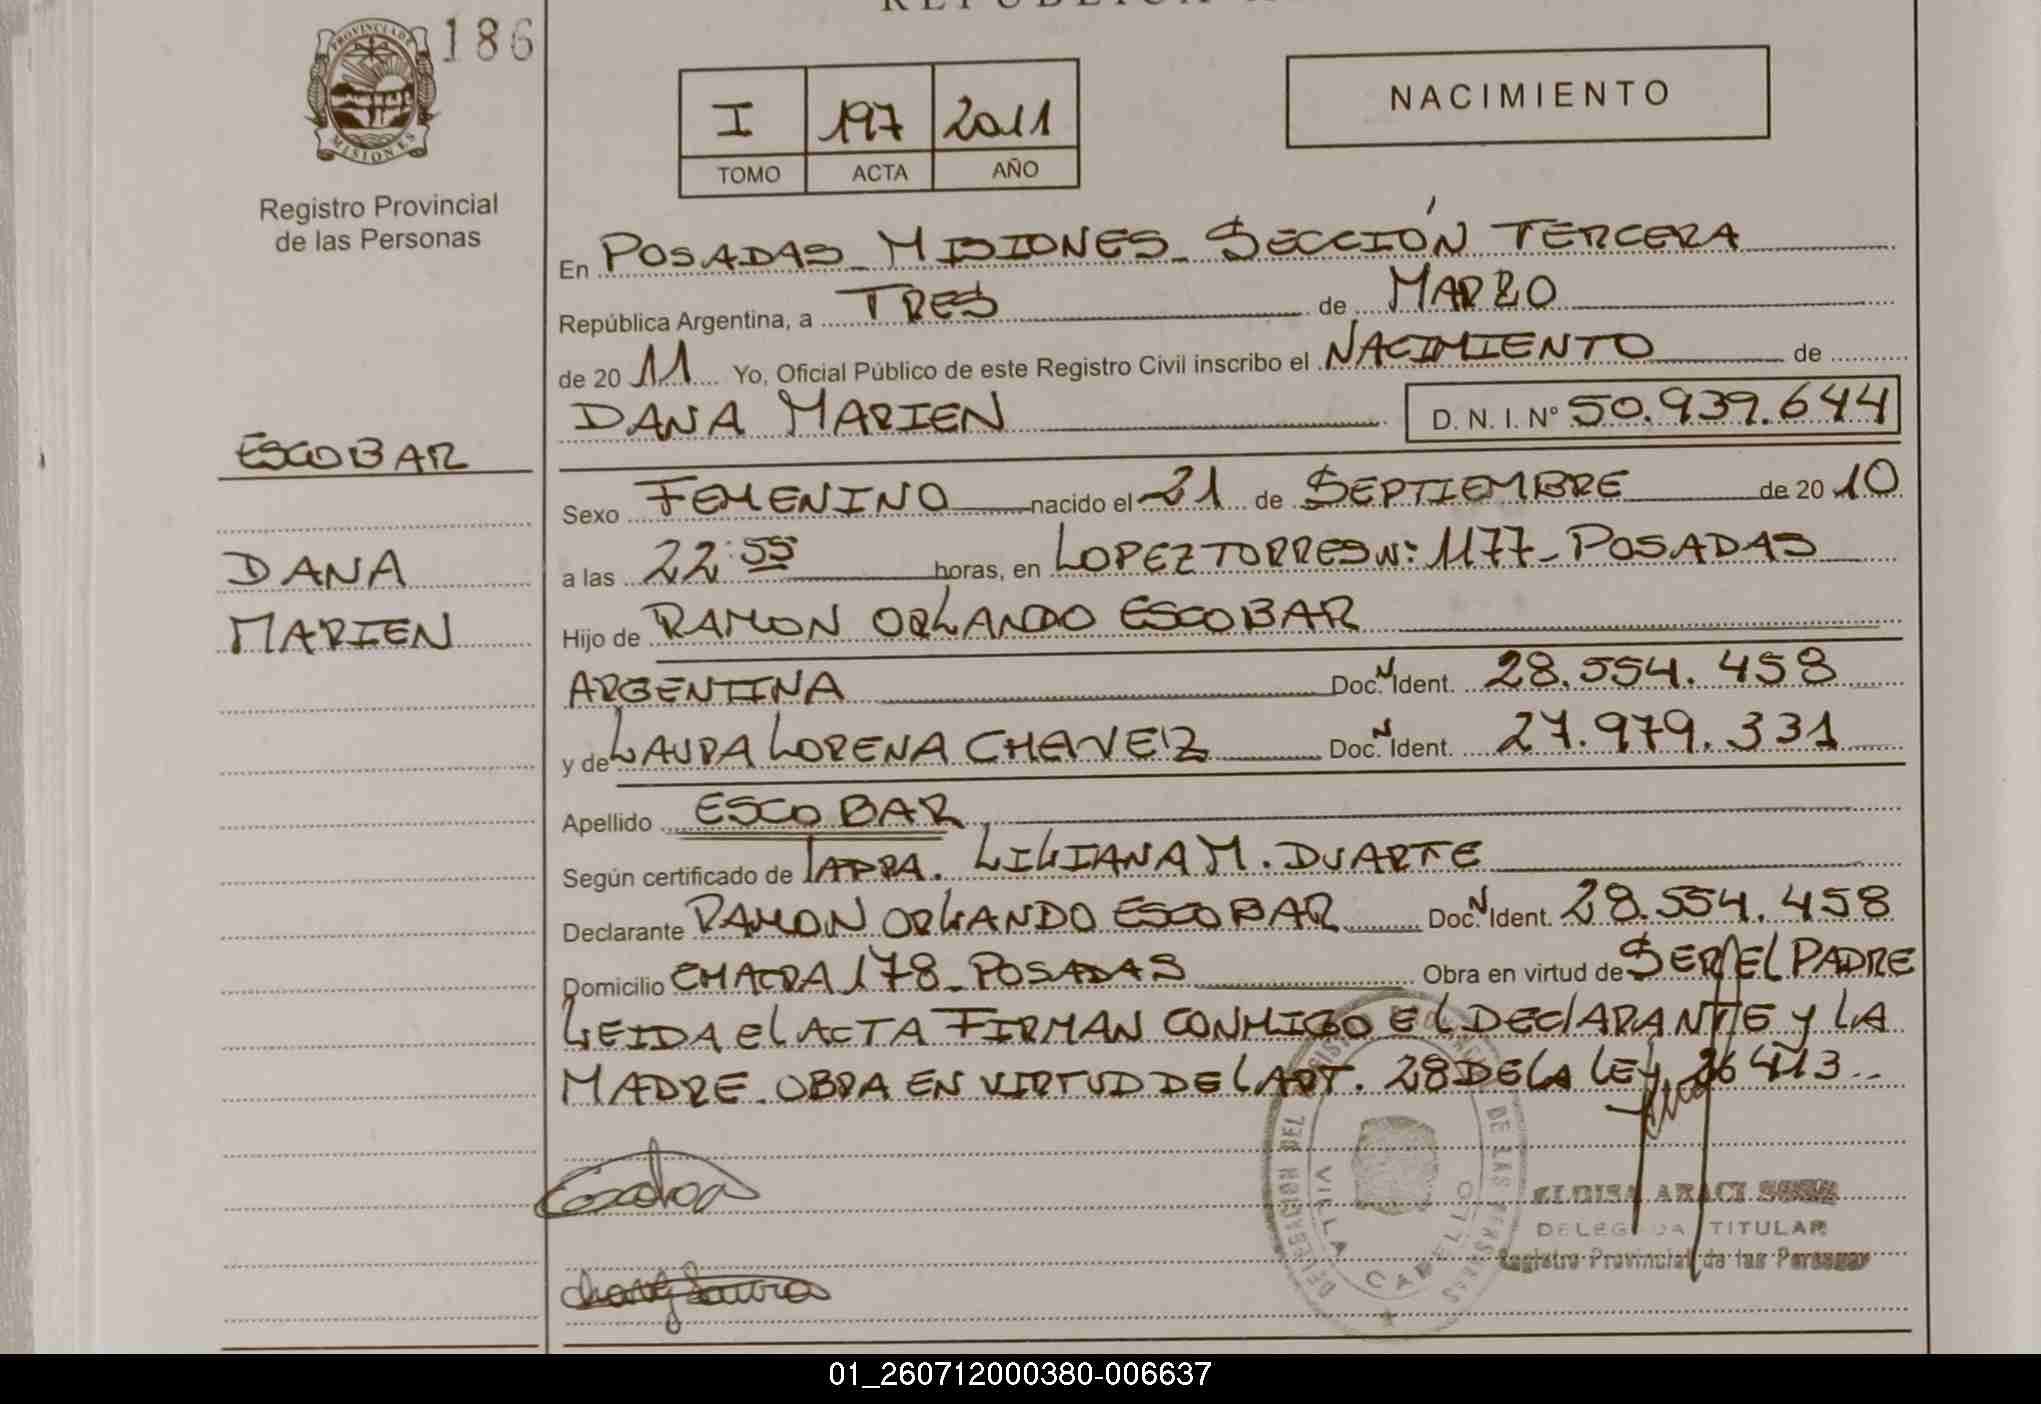 186
PROVINCIA DE
MISIONES
Registro Provincial
de las Personas
I 197 2011
TOMO ACTA AÑO
NACIMIENTO
En POSADAS - MISIONES - SECCIÓN TERCERA
República Argentina, a TRES de MARZO
de 20 11 Yo, Oficial Público de este Registro Civil inscribo el NACIMIENTO de
DANA MARIEN D. N. I. Nº 50.939.644
ESCOBAR
DANA
MARIEN
Sexo FEMENINO nacido el 21 de SEPTIEMBRE de 20 10
a las 22:55 horas, en LOPEZ TORRES Nº: 1177 - POSADAS
Hijo de RAMON ORLANDO ESCOBAR
ARGENTINA Doc. N Ident. 28.554.458
y de LAURA LORENA CHAVEZ Doc. N Ident. 27.979.331
Apellido ESCOBAR
Según certificado de LILIANA M. DUARTE
Declarante RAMON ORLANDO ESCOBAR Doc. N Ident. 28.554.458
Domicilio CHACRA 178 - POSADAS Obra en virtud de SER EL PADRE
LEIDA el ACTA FIRMAN CONMIGO El DEClARANTE y LA
MADRE. OBRA EN VIRTUD DEl ART. 28 DE LA LEY 26413 --
DELEGACION DEL DE LAS PERSONAS
VILLA CABELLO
Escobar
ELOISA ARACI
DELEGADA TITULAR
Registro Provincial de las Personas
01_260712000380-006637